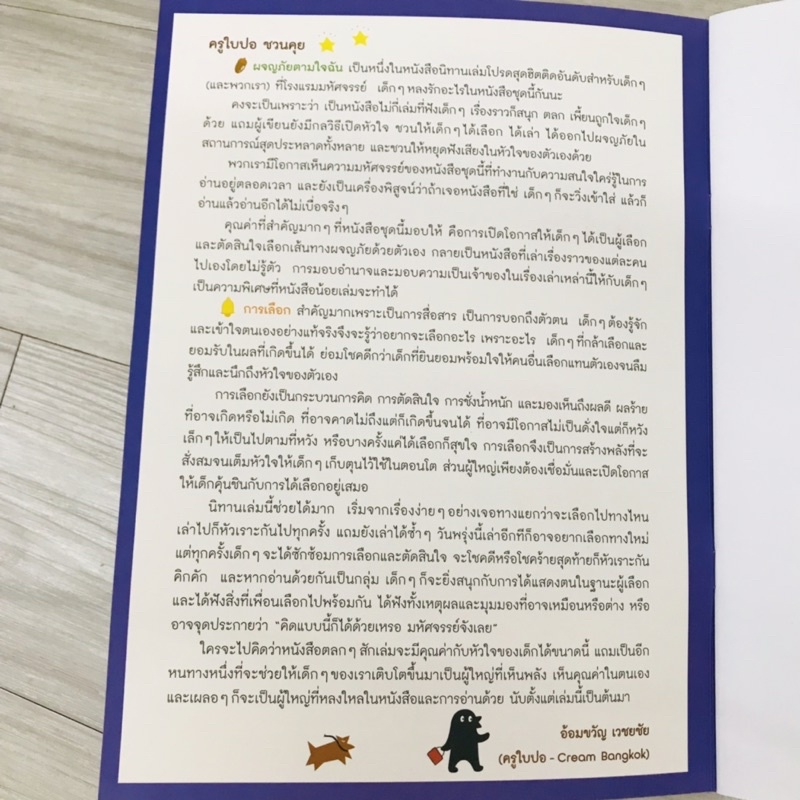 ครูใบปอ ชวนคุย
ผจญภัยตามใจฉัน เป็นหนึ่งในหนังสือนิทานเล่มโปรดสุดฮิตติดอันดับสำหรับเด็กๆ
(และพวกเรา) ที่โรงแรมมหัศจรรย์ เด็กๆ หลงรักอะไรในหนังสือชุดนี้กันนะ
คงจะเป็นเพราะว่า เป็นหนังสือไม่กี่เล่มที่ฟังเด็กๆ เรื่องราวก็สนุก ตลก เพี้ยนถูกใจเด็กๆ
ด้วย แถมผู้เขียนยังมีกลวิธีเปิดหัวใจ ชวนให้เด็กๆ ได้เลือก ได้เล่า ได้ออกไปผจญภัยใน
สถานการณ์สุดประหลาดทั้งหลาย และชวนให้หยุดฟังเสียงในหัวใจของตัวเองด้วย
พวกเรามีโอกาสเห็นความมหัศจรรย์ของหนังสือชุดนี้ที่ทำงานกับความสนใจใคร่รู้ในการ
อ่านอยู่ตลอดเวลา และยังเป็นเครื่องพิสูจน์ว่าถ้าเจอหนังสือที่ใช่ เด็กๆ ก็จะวิ่งเข้าใส่ แล้วก็
อ่านแล้วอ่านอีกได้ไม่เบื่อจริงๆ
คุณค่าที่สำคัญมากๆ ที่หนังสือชุดนี้มอบให้ คือการเปิดโอกาสให้เด็กๆ ได้เป็นผู้เลือก
และตัดสินใจเลือกเส้นทางผจญภัยด้วยตัวเอง กลายเป็นหนังสือที่เล่าเรื่องราวของแต่ละคน
ไปเองโดยไม่รู้ตัว การมอบอำนาจและมอบความเป็นเจ้าของในเรื่องเล่าเหล่านี้ให้กับเด็กๆ
เป็นความพิเศษที่หนังสือน้อยเล่มจะทำได้
การเลือก สำคัญมากเพราะเป็นการสื่อสาร เป็นการบอกถึงตัวตน เด็กๆ ต้องรู้จัก
และเข้าใจตนเองอย่างแท้จริงจึงจะรู้ว่าอยากจะเลือกอะไร เพราะอะไร เด็กๆ ที่กล้าเลือกและ
ยอมรับในผลที่เกิดขึ้นได้ ย่อมโชคดีกว่าเด็กที่ยินยอมพร้อมใจให้คนอื่นเลือกแทนตัวเองจนลืม
รู้สึกและนึกถึงหัวใจของตัวเอง
การเลือกยังเป็นกระบวนการคิด การตัดสินใจ การชั่งน้ำหนัก และมองเห็นถึงผลดี ผลร้าย
ที่อาจเกิดหรือไม่เกิด ที่อาจคาดไม่ถึงแต่ก็เกิดขึ้นจนได้ ที่อาจมีโอกาสไม่เป็นดั่งใจแต่ก็หวัง
เล็กๆ ให้เป็นไปตามที่หวัง หรือบางครั้งแค่ได้เลือกก็สุขใจ การเลือกจึงเป็นการสร้างพลังที่จะ
สั่งสมจนเต็มหัวใจให้เด็กๆ เก็บตุนไว้ใช้ในตอนโต ส่วนผู้ใหญ่เพียงต้องเชื่อมั่นและเปิดโอกาส
ให้เด็กคุ้นชินกับการได้เลือกอยู่เสมอ
นิทานเล่มนี้ช่วยได้มาก เริ่มจากเรื่องง่ายๆ อย่างเจอทางแยกว่าจะเลือกไปทางไหน
เล่าไปก็หัวเราะกันไปทุกครั้ง แถมยังเล่าได้ซ้ำๆ วันพรุ่งนี้เล่าอีกทีก็อาจอยากเลือกทางใหม่
แต่ทุกครั้งเด็กๆ จะได้ซักซ้อมการเลือกและตัดสินใจ จะโชคดีหรือโชคร้ายสุดท้ายก็หัวเราะกัน
คิกคัก และหากอ่านด้วยกันเป็นกลุ่ม เด็กๆ ก็จะยิ่งสนุกกับการได้แสดงตนในฐานะผู้เลือก
และได้ฟังสิ่งที่เพื่อนเลือกไปพร้อมกัน ได้ฟังทั้งเหตุผลและมุมมองที่อาจเหมือนหรือต่าง หรือ
อาจจุดประกายว่า “คิดแบบนี้ก็ได้ด้วยเหรอ มหัศจรรย์จังเลย”
ใครจะไปคิดว่าหนังสือตลกๆ สักเล่มจะมีคุณค่ากับหัวใจของเด็กได้ขนาดนี้ แถมเป็นอีก
หนทางหนึ่งที่จะช่วยให้เด็กๆ ของเราเติบโตขึ้นมาเป็นผู้ใหญ่ที่เห็นพลัง เห็นคุณค่าในตนเอง
และเผลอๆ ก็จะเป็นผู้ใหญ่ที่หลงใหลในหนังสือและการอ่านด้วย นับตั้งแต่เล่มนี้เป็นต้นมา
อ้อมขวัญ เวชยชัย
(ครูใบปอ - Cream Bangkok)